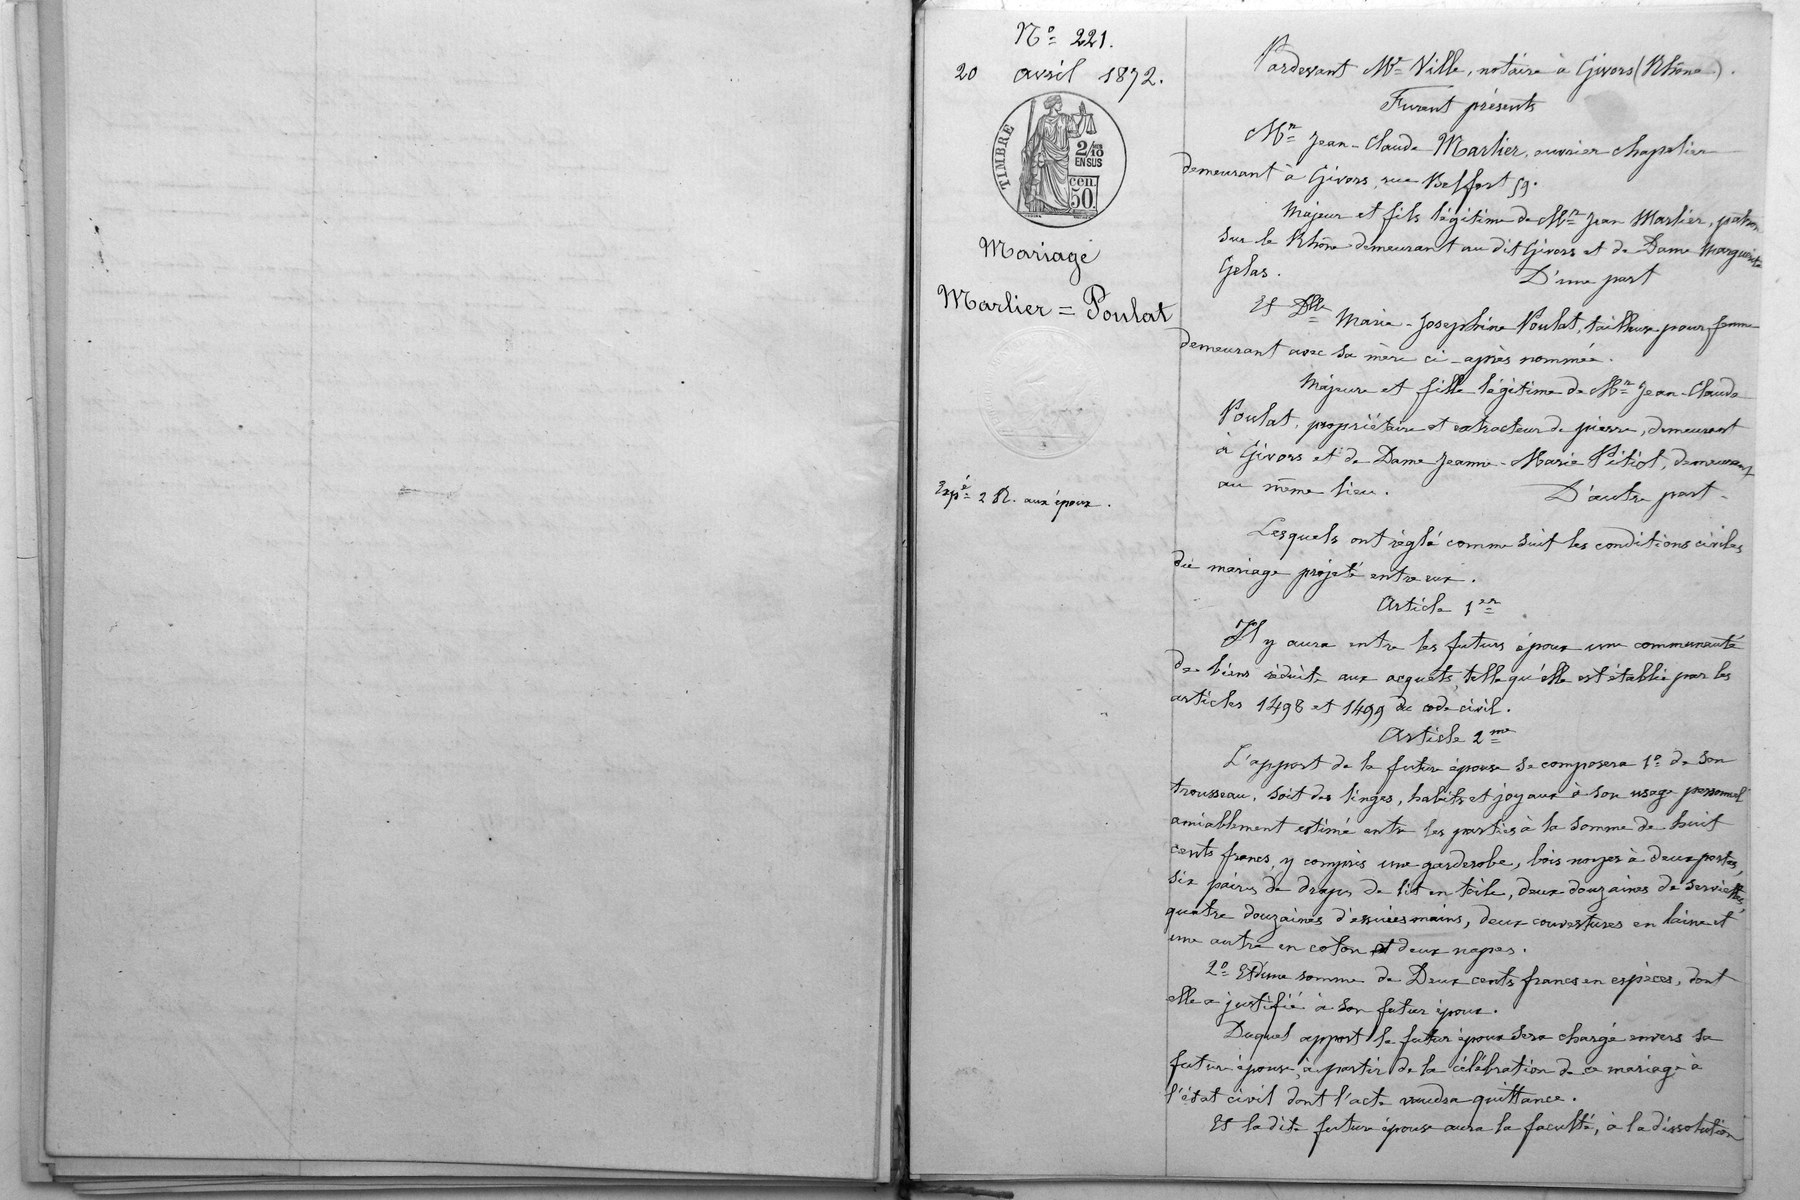 Nº 221.
20 avril 1872.
TIMBRE
2/10
EN SUS
cen.
50.
Mariage
Marlier = Poulat
Expé 2 R. aux époux.
Pardevant Me Ville, notaire à Givors (Rhône).
Furent présents
Mr Jean-Claude Marlier, ouvrier chapelier
demeurant à Givors, rue Belfort 59.
Majeur et fils légitime de Mr Jean Marlier, patron
sur le Rhône demeurant au dit Givors et de Dame Marguerite
Gelas. D'une part
Et Dlle Marie-Joséphine Poulat, tailleuse pour femme
demeurant avec sa mère ci-après nommée.
Majeure et fille légitime de Mr Jean-Claude
Poulat, propriétaire et extracteur de pierre, demeurant
à Givors et de Dame Jeanne-Marie Pitiot, demeurant
au même lieu. D'autre part.
Lesquels ont réglé comme suit les conditions civiles
du mariage projeté entre eux.
Article 1er
Il y aura entre les futurs époux une communauté
de biens réduite aux acquets, telle qu'elle est établie par les
articles 1498 et 1499 du code civil.
Article 2me
L'apport de la future épouse se composera 1º de son
trousseau, soit des linges, habits et joyaux à son usage personnel
amiablement estimé entre les parties à la somme de huit
cents francs y compris une garderobe, bois noyer à deux portes,
six paires de draps de lit en toile, deux douzaines de serviettes,
quatre douzaines d'essuiesmains, deux couvertures en laine et
une autre en coton et deux napes.
2º Et d'une somme de Deux cents francs en espèces, dont
elle a justifié à son futur époux.
Duquel apport le futur époux sera chargé envers sa
future épouse, à partir de la célébration de ce mariage à
l'état civil dont l'acte vaudra quittance.
Et la dite future épouse aura la faculté, à la dissolution